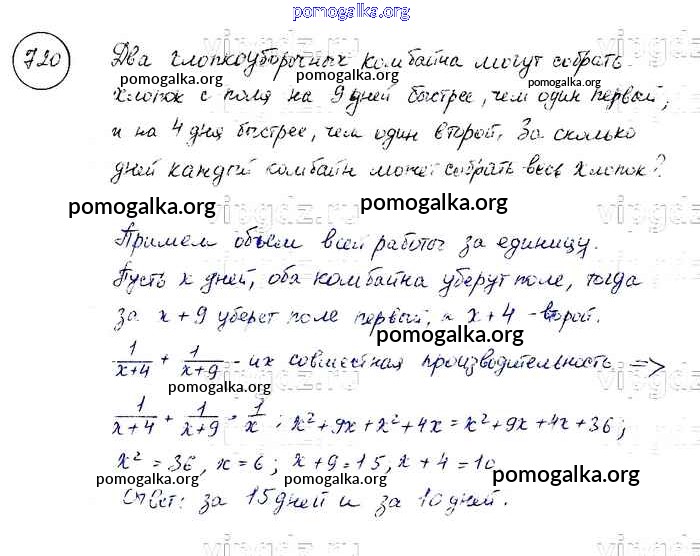 pomogalka.org
720
Два хлопкоуборочных комбайна могут собрать
pomogalka.org pomogalka.org
хлопок с поля на 9 дней быстрее, чем один первый,
и на 4 дня быстрее, чем один второй. За сколько
дней каждый комбайн может собрать весь хлопок?
pomogalka.org pomogalka.org
Примем объем всей работы за единицу.
Пусть x дней, оба комбайна уберут поле, тогда
за x+9 уберет поле первый, а x+4 - второй.
pomogalka.org
1/(x+4) + 1/(x+9) - их совместная производительность =>
pomogalka.org
1/(x+4) + 1/(x+9) = 1/x ; x²+9x+x²+4x = x²+9x+4x+36 ;
x² = 36, x = 6 ; x+9=15, x+4=10
pomogalka.org
Ответ: за 15 дней и за 10 дней.